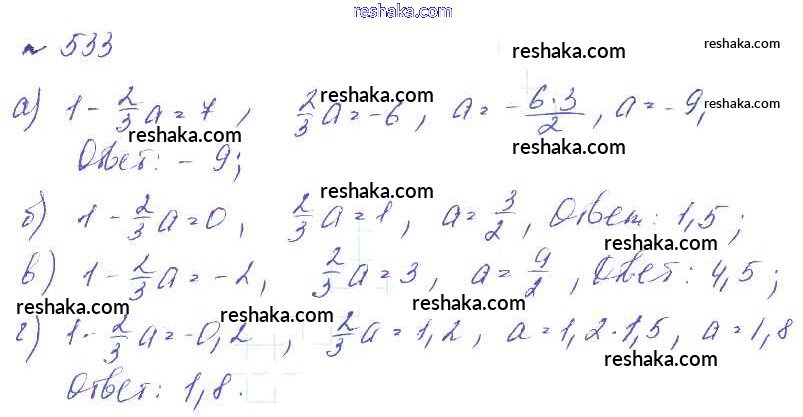 reshaka.com
№ 533
reshaka.com reshaka.com
а) 1 - 2/3 a = 7, 2/3 a = -6, a = - 6·3/2, a = -9,
reshaka.com reshaka.com
reshaka.com reshaka.com
Ответ: - 9;
reshaka.com
б) 1 - 2/3 a = 0, 2/3 a = 1, a = 3/2, Ответ: 1,5;
reshaka.com reshaka.com
в) 1 - 2/3 a = -2, 2/3 a = 3, a = 9/2, Ответ: 4,5;
reshaka.com reshaka.com reshaka.com
г) 1 - 2/3 a = -0,2, 2/3 a = 1,2, a = 1,2·1,5, a = 1,8
reshaka.com reshaka.com
Ответ: 1,8.